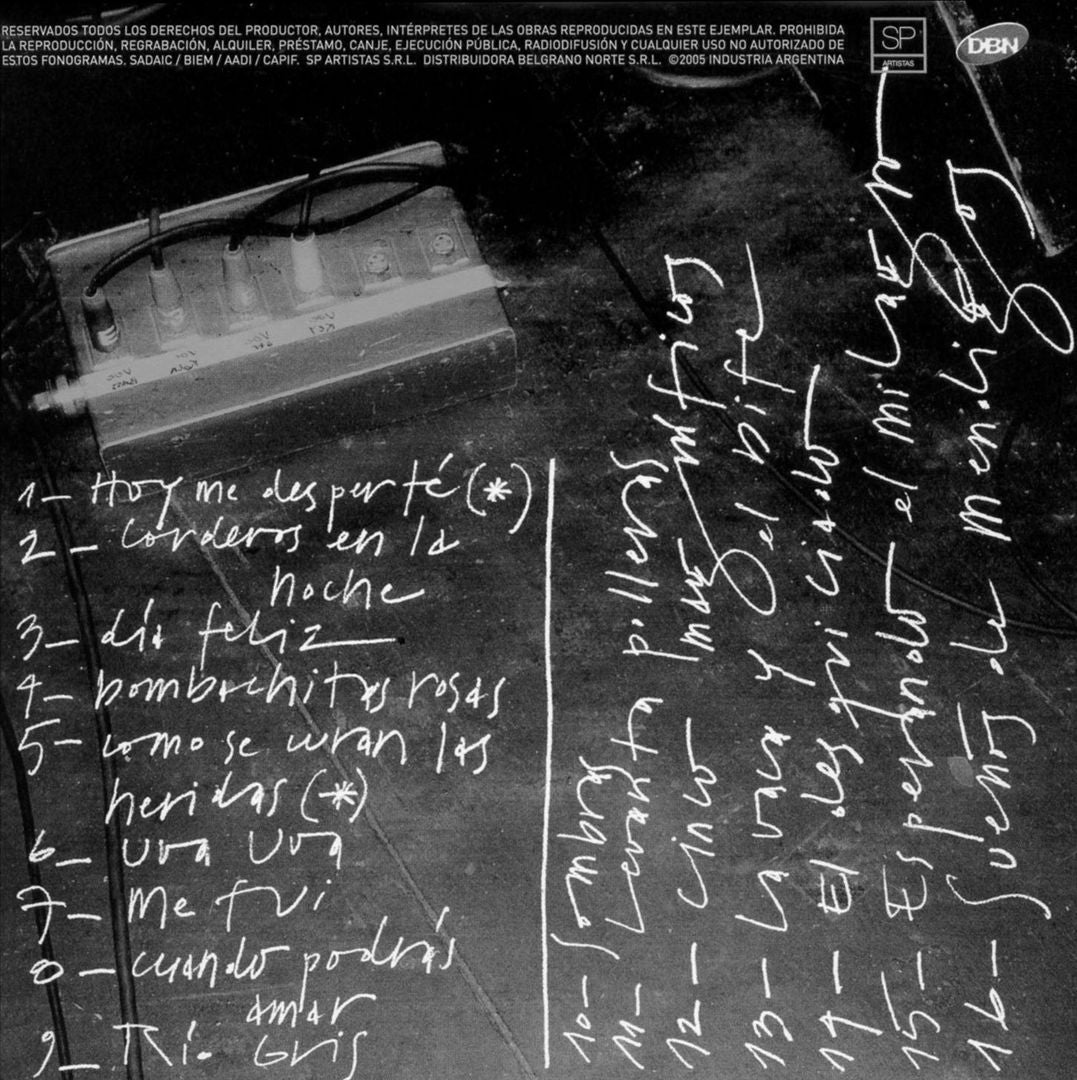 RESERVADOS TODOS LOS DERECHOS DEL PRODUCTOR, AUTORES, INTÉRPRETES DE LAS OBRAS REPRODUCIDAS EN ESTE EJEMPLAR. PROHIBIDA
LA REPRODUCCIÓN, REGRABACIÓN, ALQUILER, PRÉSTAMO, CANJE, EJECUCIÓN PÚBLICA, RADIODIFUSIÓN Y CUALQUIER USO NO AUTORIZADO DE
ESTOS FONOGRAMAS. SADAIC / BIEM / AADI / CAPIF. SP ARTISTAS S.R.L. DISTRIBUIDORA BELGRANO NORTE S.R.L. ©2005 INDUSTRIA ARGENTINA
SP
ARTISTAS
DBN
1- Hoy me desperté (*)
2- corderos en la
noche
3- día feliz
4- bombachitas rosas
5- como se curan las
heridas (*)
6- uva uva
7- Me fui
8- cuando podrás
amar
9- Río Gris
10- Sombras
11- Levanta polleras
12- cinco magníficos
13- La vaca y el bife
14- El desquiciado
15- Esperando el milagro
16- Sueños de mendigos